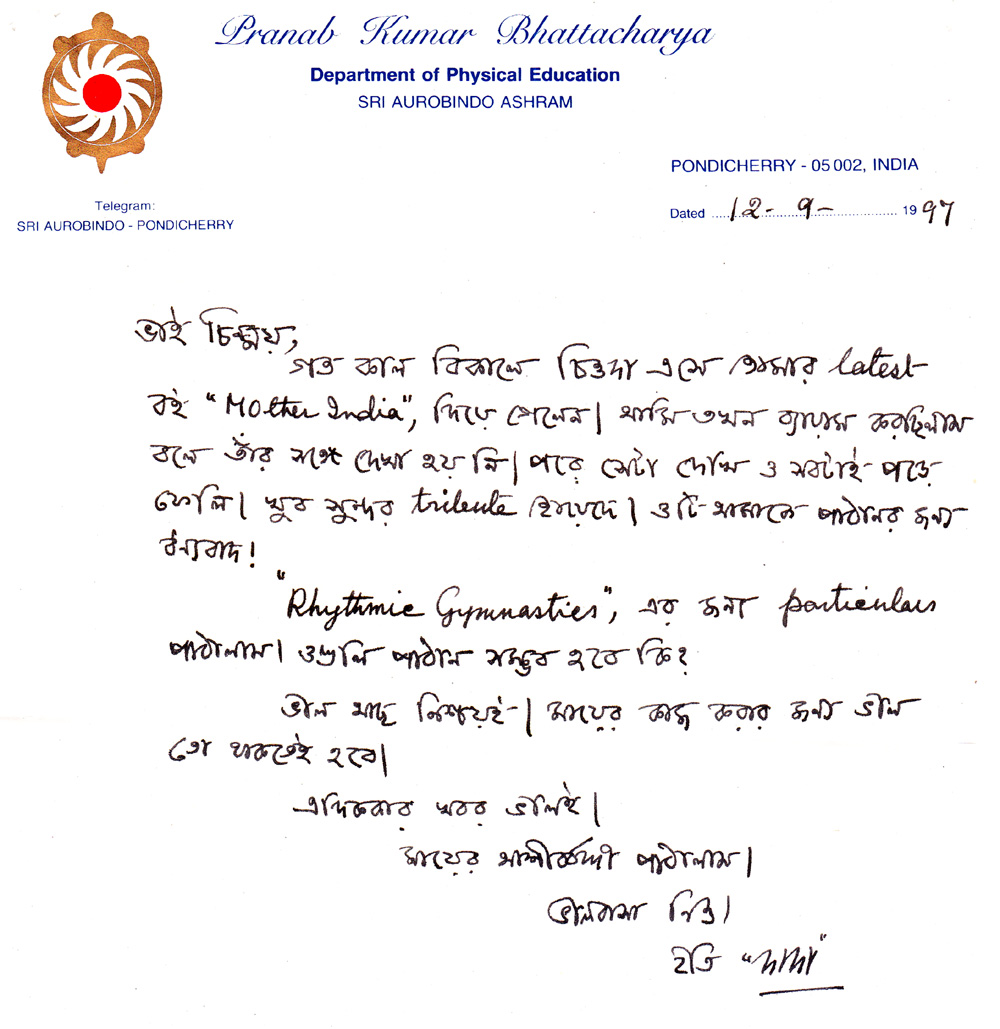 Pranab Kumar Bhattacharya
Department of Physical Education
SRI AUROBINDO ASHRAM
PONDICHERRY - 05 002, INDIA
Telegram:
SRI AUROBINDO - PONDICHERRY
Dated 12 - 9 - 1997
ভাই চিন্ময়,
গত কাল বিকালে চিত্তদা এসে তোমার latest
বই "Mother India", দিয়ে গেলেন। আমি তখন ব্যায়াম করছিলাম
বলে তাঁর সঙ্গে দেখা হয় নি। পরে সেটা দেখি ও সবটাই পড়ে
ফেলি। খুব সুন্দর tribute হয়েছে। ওটি আমাকে পাঠানর জন্য
ধন্যবাদ!
"Rhythmic Gymnastics", এর জন্য particulars
পাঠালাম। ওগুলি পাঠান সম্ভব হবে কি?
ভাল আছ নিশ্চয়ই। মায়ের কাজ করার জন্য ভাল
তো থাকতেই হবে।
এদিককার খবর ভালই।
মায়ের আশীর্ব্বাদী পাঠালাম।
ভালবাসা নিও।
ইতি "দাদা"